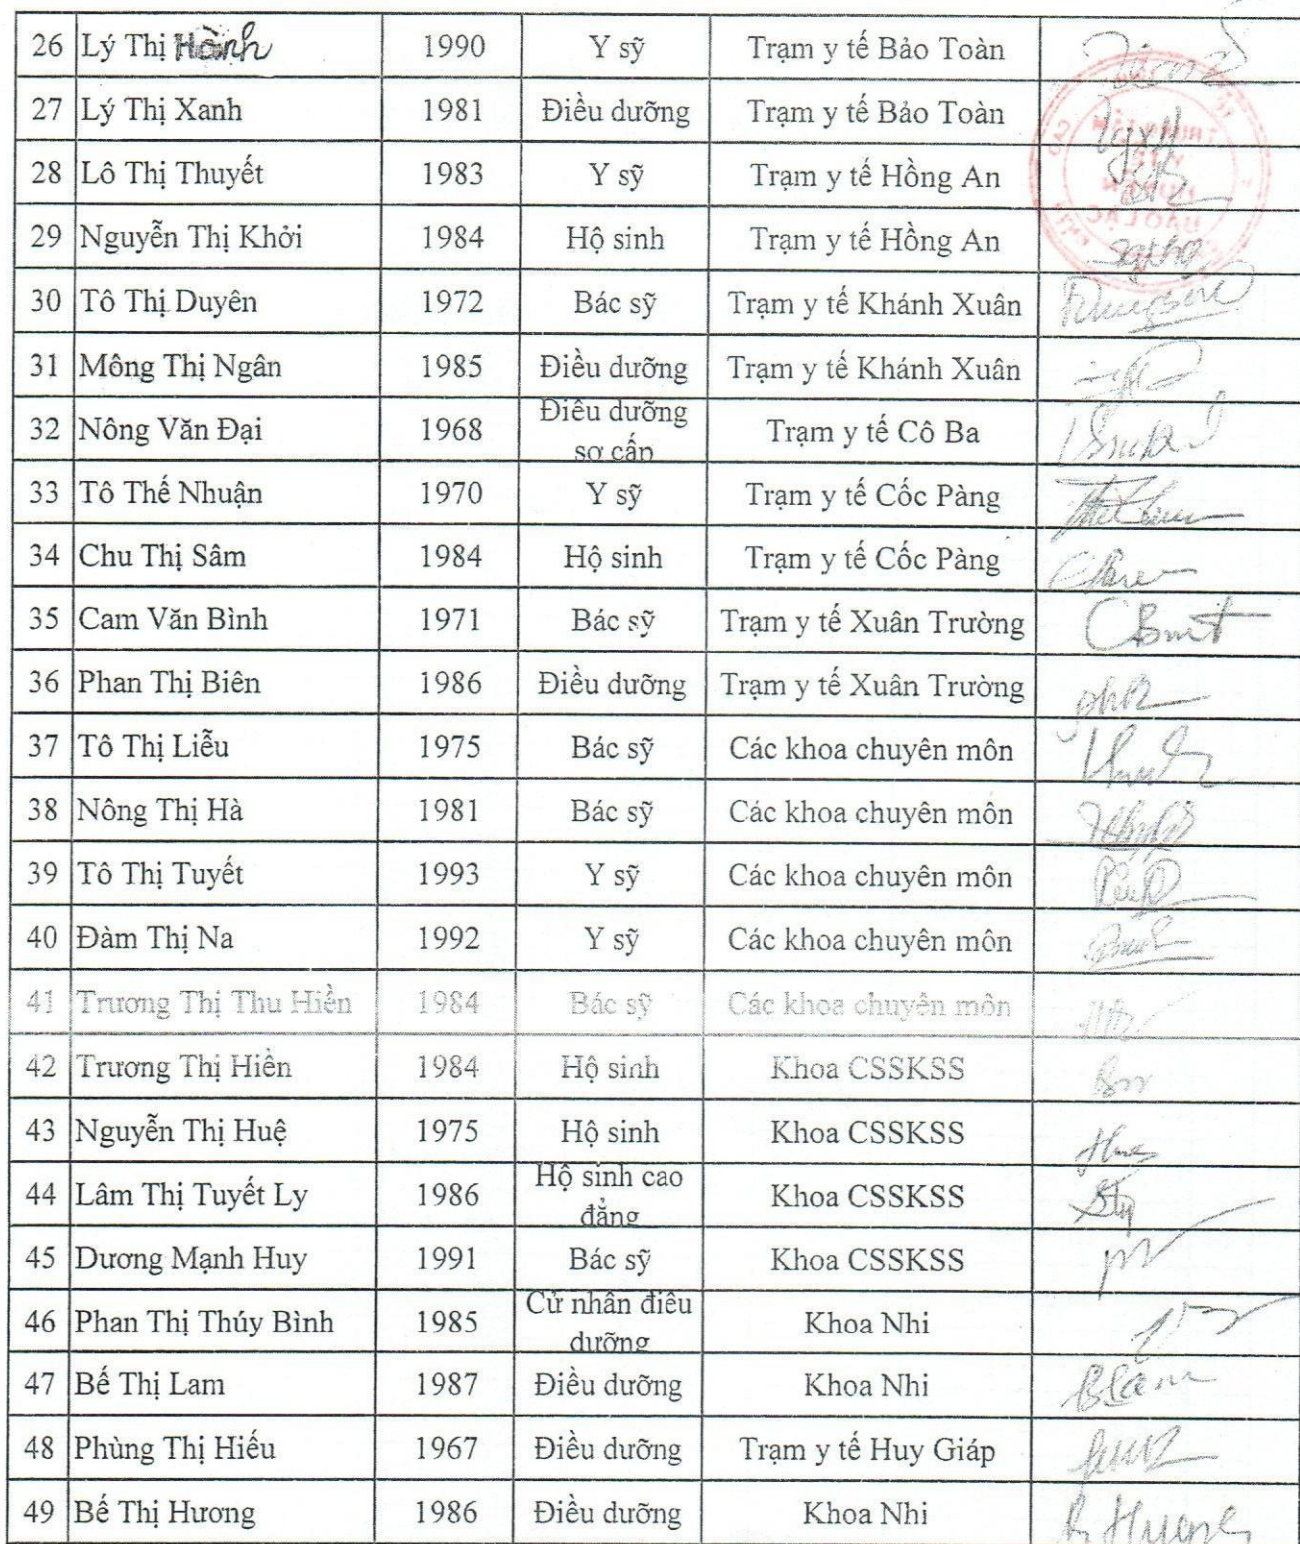 26 Lý Thị Hành 1990 Y sỹ Trạm y tế Bảo Toàn
27 Lý Thị Xanh 1981 Điều dưỡng Trạm y tế Bảo Toàn
28 Lô Thị Thuyết 1983 Y sỹ Trạm y tế Hồng An
29 Nguyễn Thị Khởi 1984 Hộ sinh Trạm y tế Hồng An
30 Tô Thị Duyên 1972 Bác sỹ Trạm y tế Khánh Xuân
31 Mông Thị Ngân 1985 Điều dưỡng Trạm y tế Khánh Xuân
32 Nông Văn Đại 1968 Điều dưỡng sơ cấp Trạm y tế Cô Ba
33 Tô Thế Nhuận 1970 Y sỹ Trạm y tế Cốc Pàng
34 Chu Thị Sâm 1984 Hộ sinh Trạm y tế Cốc Pàng
35 Cam Văn Bình 1971 Bác sỹ Trạm y tế Xuân Trường
36 Phan Thị Biên 1986 Điều dưỡng Trạm y tế Xuân Trường
37 Tô Thị Liễu 1975 Bác sỹ Các khoa chuyên môn
38 Nông Thị Hà 1981 Bác sỹ Các khoa chuyên môn
39 Tô Thị Tuyết 1993 Y sỹ Các khoa chuyên môn
40 Đàm Thị Na 1992 Y sỹ Các khoa chuyên môn
41 Trương Thị Thu Hiền 1984 Bác sỹ Các khoa chuyên môn
42 Trương Thị Hiền 1984 Hộ sinh Khoa CSSKSS
43 Nguyễn Thị Huệ 1975 Hộ sinh Khoa CSSKSS
44 Lâm Thị Tuyết Ly 1986 Hộ sinh cao đẳng Khoa CSSKSS
45 Dương Mạnh Huy 1991 Bác sỹ Khoa CSSKSS
46 Phan Thị Thúy Bình 1985 Cử nhân điều dưỡng Khoa Nhi
47 Bế Thị Lam 1987 Điều dưỡng Khoa Nhi
48 Phùng Thị Hiếu 1967 Điều dưỡng Trạm y tế Huy Giáp
49 Bế Thị Hương 1986 Điều dưỡng Khoa Nhi